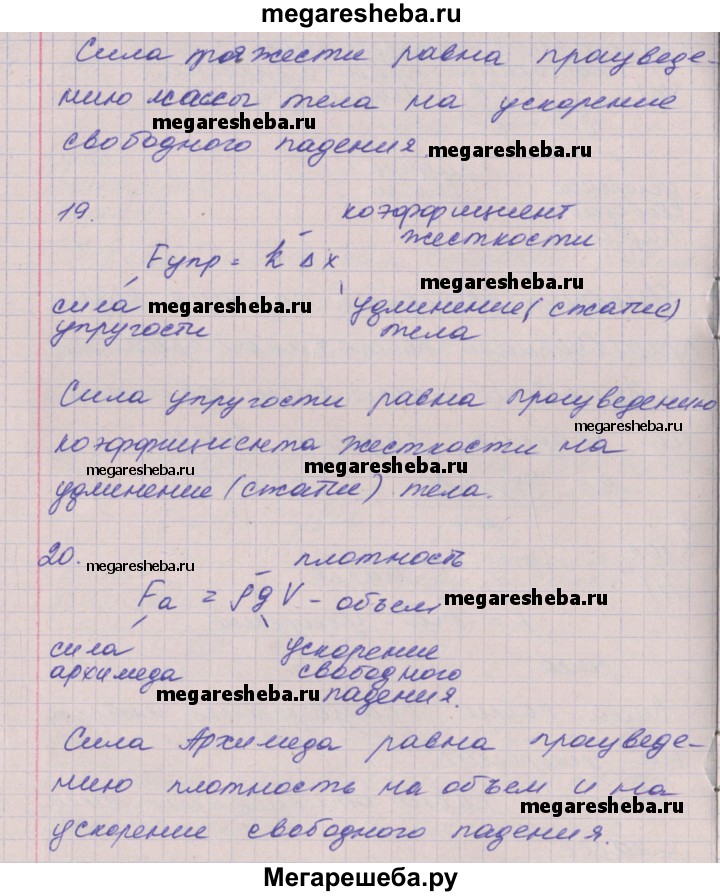 megaresheba.ru
Сила тяжести равна произведе-
нию массы тела на ускорение
megaresheba.ru
свободного падения megaresheba.ru
19. коэффициент
жесткости
Fупр = k Δx
megaresheba.ru
сила megaresheba.ru удлинение (сжатие)
упругости тела
Сила упругости равна произведению
megaresheba.ru
коэффициента жесткости на
megaresheba.ru megaresheba.ru
удлинение (сжатие) тела.
20. megaresheba.ru плотность
Fa = ρgV - объем megaresheba.ru
сила ускорение
архимеда свободного
megaresheba.ru падения.
Сила Архимеда равна произведе-
нию плотность на объем и на
megaresheba.ru
ускорение свободного падения.
Мегарешеба.ру